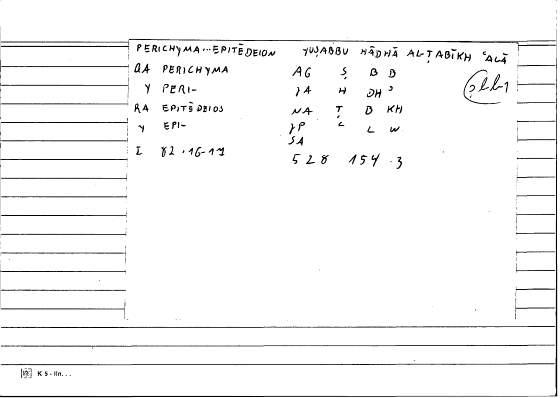 PERICHYMA...EPITĒDEION YUṢABBU HĀDHĀ AL-ṬABĪKH ʿALĀ
QA PERICHYMA AG Ṣ B B
Y PERI- JA H DH ʾ
RA EPITĒDEIOS NA Ṭ B KH
Y EPI- JP ʿ L W
SA
I 82.16-17 528 154.3
K 5 - IIn...